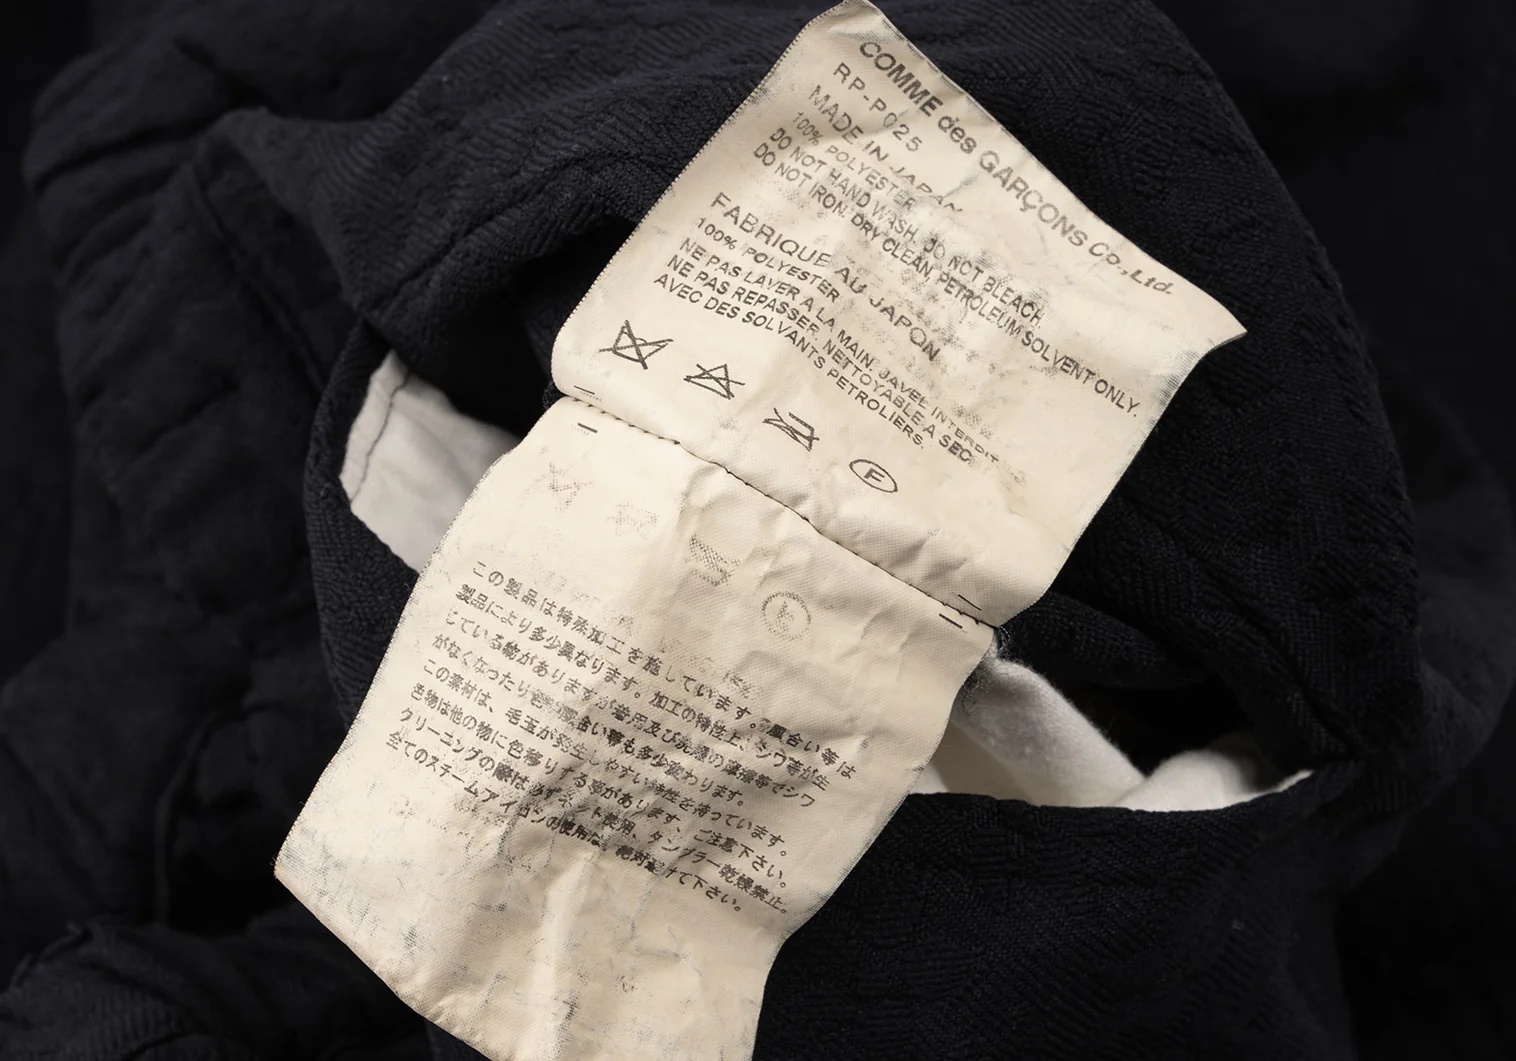 COMME des GARÇONS Co.,Ltd.
RP-P025
MADE IN JAPAN
100% POLYESTER
DO NOT HAND WASH. DO NOT BLEACH.
DO NOT IRON. DRY CLEAN PETROLEUM SOLVENT ONLY.
FABRIQUE AU JAPON
100% POLYESTER
NE PAS LAVER A LA MAIN. JAVEL INTERDIT
NE PAS REPASSER. NETTOYABLE A SEC
AVEC DES SOLVANTS PETROLIERS.
F
この製品は特殊加工を施しています。風合い等は
製品により多少異なります。加工の特性上、シワ等が生
じている物がありますが着用及び洗濯の摩擦等でシワ
がなくなったり色、風合い等も多少変わります。
この素材は、毛玉が発生しやすい特性を持っています。
色物は他の物に色移りする事があります、ご注意下さい。
クリーニングの際は必ずネット使用、タンブラー乾燥禁止。
全てのスチームアイロンの使用は、絶対避けて下さい。